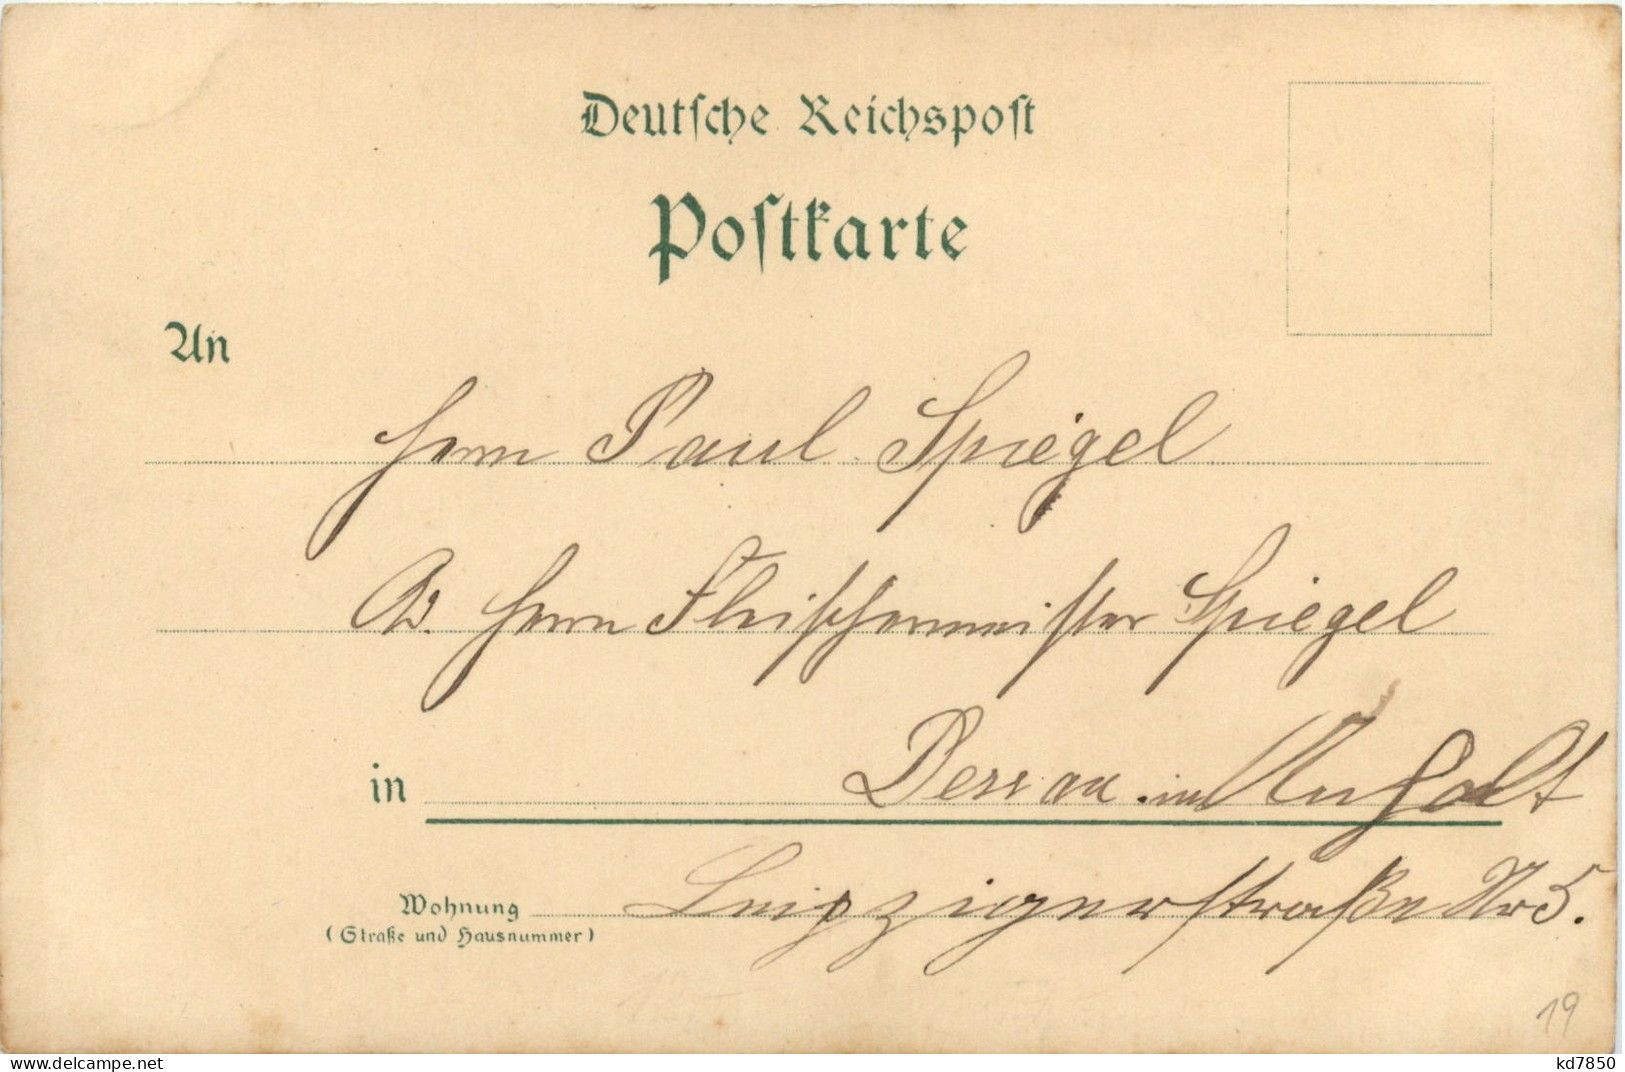 Deutsche Reichspost
Postkarte
An
Herrn Paul Spiegel
Ad. Herrn Fleischermeister Spiegel
in Dessau in Anhalt
Wohnung Leipzigerstraße Nr 5.
(Straße und Hausnummer)
19
www.delcampe.net
kd7850